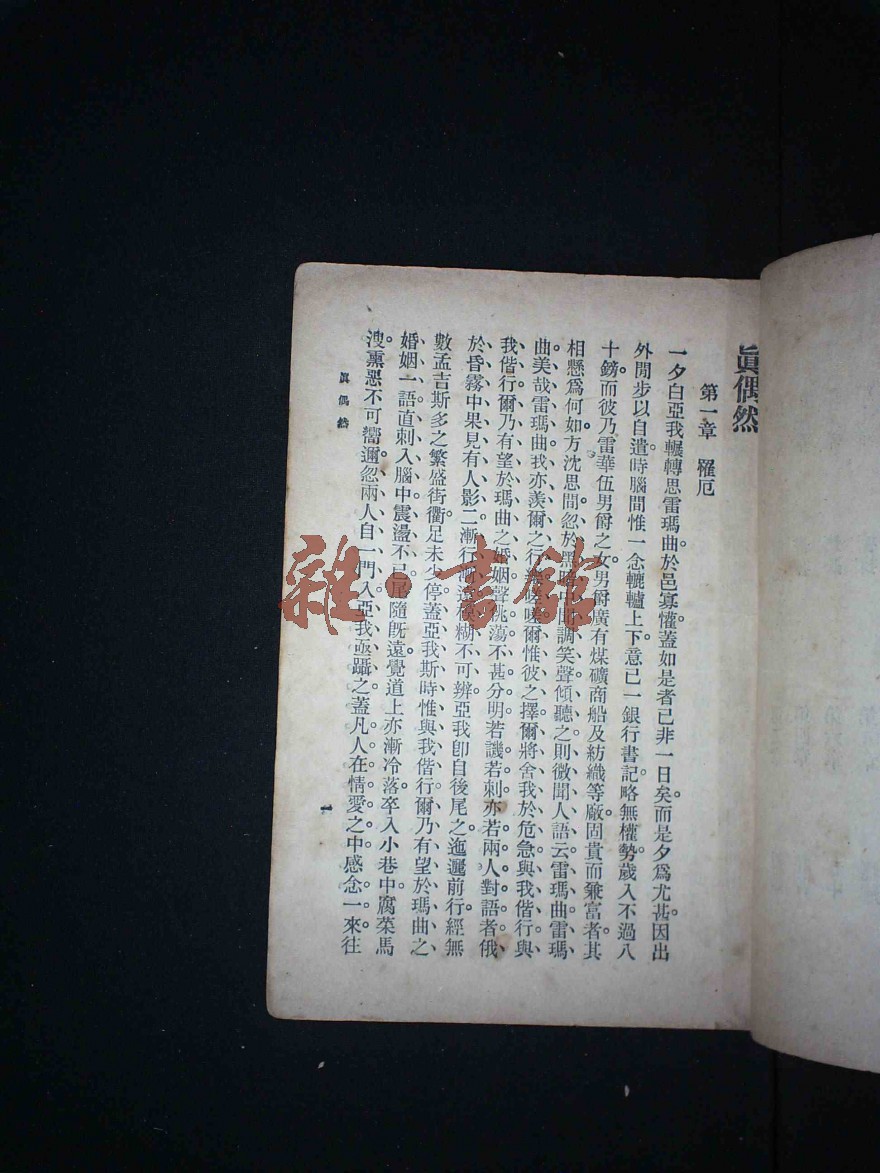 眞偶然
第一章　罹厄
一夕白亞我輾轉思雷瑪曲於邑寡懽蓋如是者已非一日矣而是夕爲尤甚因出
外閒步以自遣時腦間惟一念轆轤上下意已一銀行書記略無權勢歲入不過八
十鎊而彼乃雷華伍男爵之女男爵廣有煤礦商船及紡織等廠固貴而兼富者其
相懸爲何如方沈思間忽於黑中調笑聲傾聽之則微聞人語云雷瑪曲雷瑪
曲美哉雷瑪曲我亦羨爾之行爾惟彼之擇爾將舍我於危急與我偕行與
我偕行爾乃有望於瑪曲之婚姻聲佻蕩不甚分明若譏若刺亦若兩人對語者俄
於昏霧中果見有人影二漸行漸遠模糊不可辨亞我卽自後尾之迤邐前行經無
數孟吉斯多之繁盛街衢足未少停蓋亞我斯時惟與我偕行爾乃有望於瑪曲之
婚姻一語直刺入腦中震盪不已尾隨旣遠覺道上亦漸冷落卒入小巷中腐菜馬
溲熏惡不可嚮邇忽兩人自一門入亞我亟躡之蓋凡人在情愛之中感念一來往
眞偶然
一
雜·書館